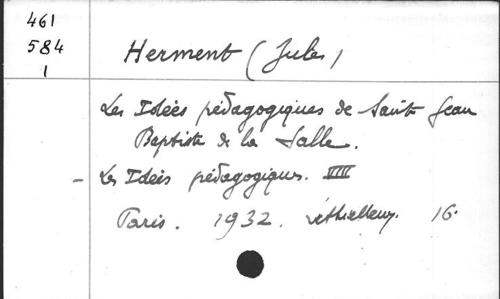 461
584
1
Herment (Jules)
Les Idées pédagogiques de Saint Jean
Baptiste de la Salle.
- Les Idées pédagogiques. VIII
Paris. 1932. Lethielleux. 16.